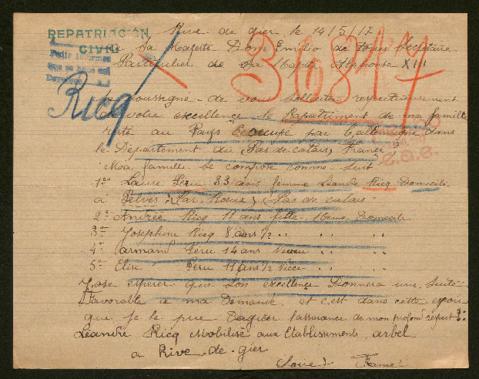 Rive de gier, le 14/5/17
REPATRIACION
CIVIL
a Sa Majesté Dom Emilio de Secrétaire
Particulier de Sa Majté Alphonse XIII
36847
Ricq
soussigné - de vous solliciter respectueusement
a votre excellence le Repatriment de ma famille
resté au Pays Occupé par l'allemagne dans
le Département du Pas de calais, France
Moa famille se compose comme suit
1er Laure Leru 33 ans femme Leandre Ricq Domicile
à Pelves par Roeux Pas de calais
2e Andrée Ricq 11 ans fille - Même Domicile
3e Josephine Ricq 8 ans 1/2
4e armand Leru 14 ans neveu
5e Elise Leru 11 ans 1/2 nièce
J'ose esperer que Son excellence Donnera une Suite
Favorable a ma Demande et c'est dans cette espoir
que je le prie D'agréer l'assurance de mon profond respect
Léandre Ricq Mobilisé aux Etablissements arbel
a Rive-de-gier
(Loire) France